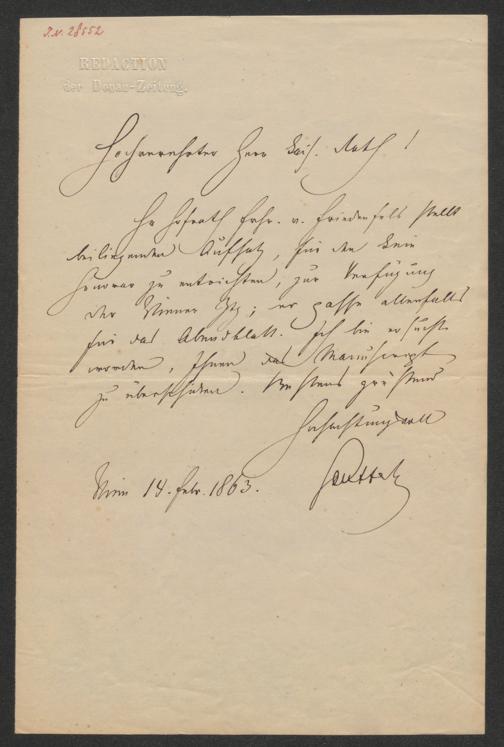 J.N. 28552
REDACTION
der Donau-Zeitung.
Hochverehrter Herr Kais. Rath!
Hr Hofrath Frhr. v. Friedenfels stellt
beiliegenden Aufsatz, für den kein
Honorar zu entrichten, zur Verfügung
der Wiener Ztg; er passe allenfalls
für das Abendblatt. Ich bin ersucht
worden, Ihnen das Manuscript
zu überschicken. Bestens grüßend
Hochachtungsvoll
Wien 14. Febr. 1863.